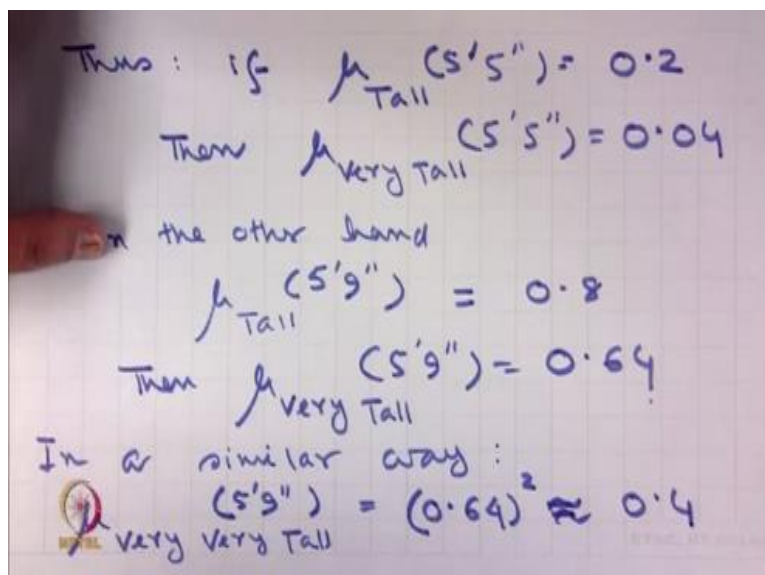 Thus: if μ Tall (5'5") = 0.2
Then μ Very Tall (5'5") = 0.04
n the other hand
μ Tall (5'9") = 0.8
Then μ Very Tall (5'9") = 0.64
In a similar way:
μ Very Very Tall (5'9") = (0.64)² ≈ 0.4
NPTEL